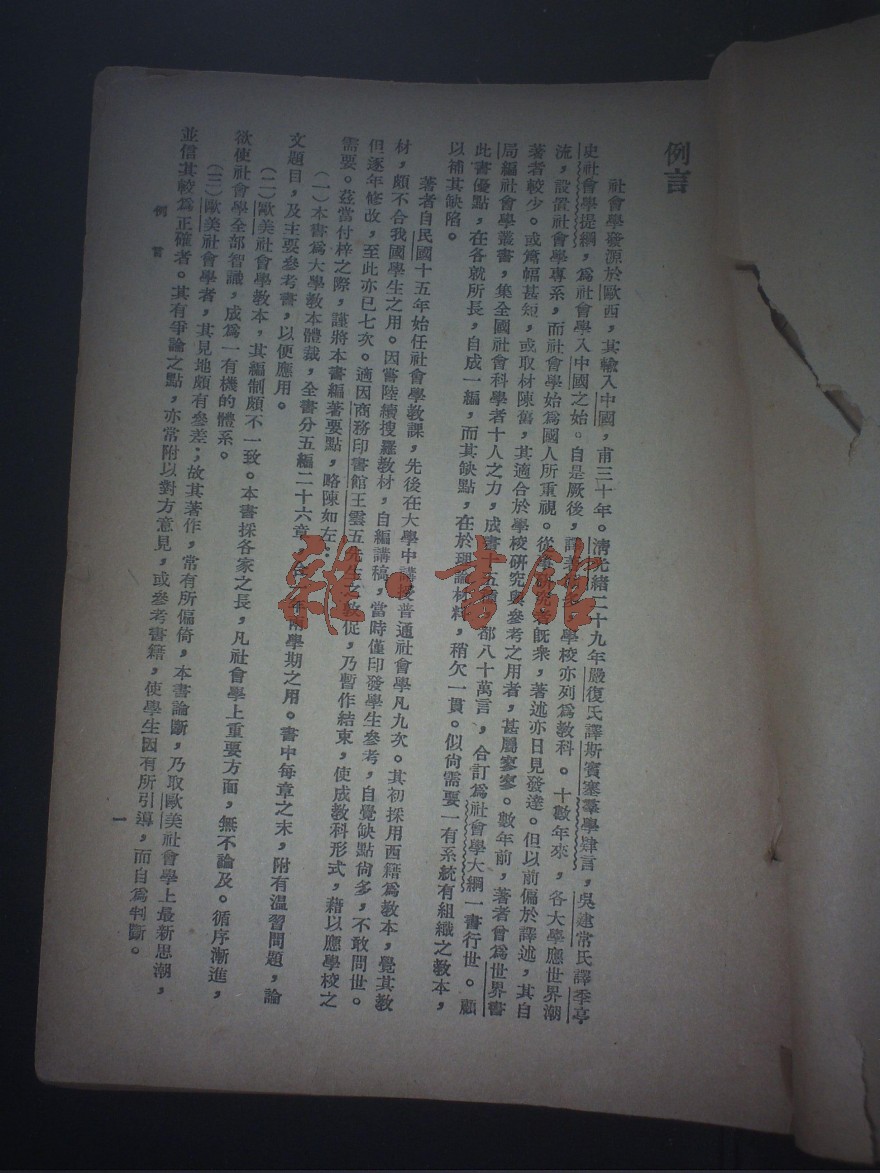 例言
社會學發源於歐西，其輸入中國，甫三十年。清光緒二十九年嚴復氏譯斯賓塞羣學肄言，吳建常氏譯季亭
史社會學提綱，爲社會學入中國之始。自是厥後，譯著，學校亦列爲教科。十數年來，各大學應世界潮
流，設置社會學專系，而社會學始爲國人所重視。從旣衆，著述亦日見發達。但以前偏於譯述，其自
著者較少。或篇幅甚短，或取材陳舊，其適合於學校研究與參考之用者，甚屬寥寥。數年前，著者曾爲世界書
局編社會學叢書，集全國社會科學者十人之力，成書十五種，都八十萬言，合訂爲社會學大綱一書行世。顧
此書優點，在各就所長，自成一編，而其缺點，在於理論材料，稍欠一貫。似尙需要一有系統有組織之教本，
以補其缺陷。
著者自民國十五年始任社會學教課，先後在大學中講授普通社會學凡九次。其初採用西籍爲教本，覺其教
材，頗不合我國學生之用。因嘗陸續搜羅教材，自編講稿，當時僅印發學生參考，自覺缺點尙多，不敢問世。
但逐年修改，至此亦已七次。適因商務印書館王雲五先生之敦促，乃暫作結束，使成教科形式，藉以應學校之
需要。茲當付梓之際，謹將本書編著要點，略陳如左：
（一）本書爲大學教本體裁，全書分五編二十六章，合一年兩學期之用。書中每章之末，附有溫習問題，論
文題目，及主要參考書，以便應用。
（二）歐美社會學教本，其編制頗不一致。本書採各家之長，凡社會學上重要方面，無不論及。循序漸進，
欲使社會學全部智識，成爲一有機的體系。
（三）歐美社會學者，其見地頗有參差；故其著作，常有所偏倚，本書論斷，乃取歐美社會學上最新思潮，
並信其較爲正確者。其有爭論之點，亦常附以對方意見，或參考書籍，使學生因有所引導，而自爲判斷。
例言
一
雜·書館